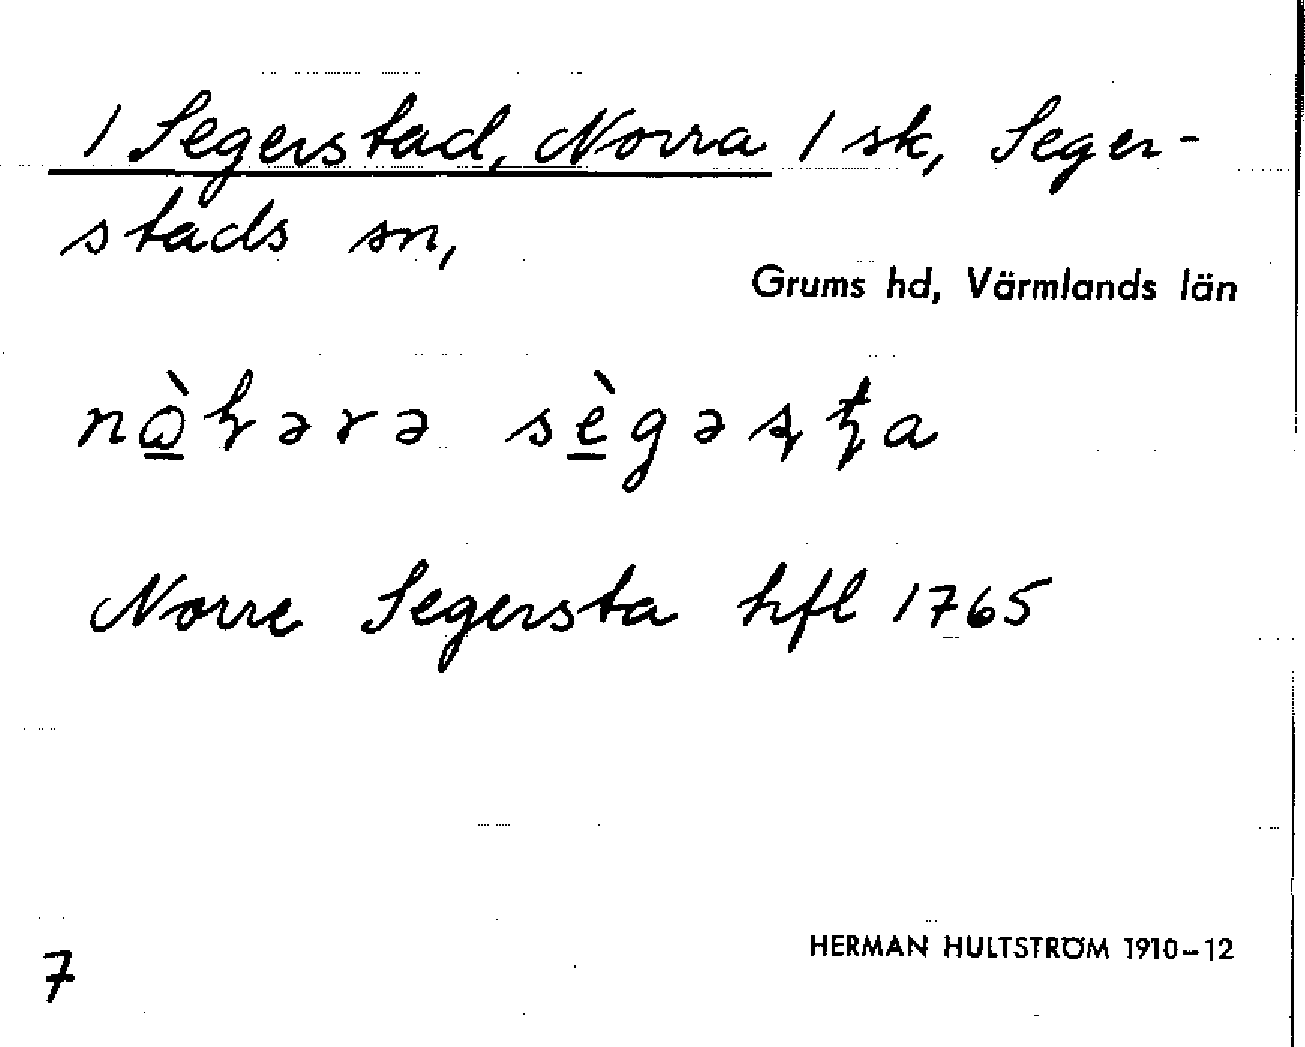 / Segerstad, Norra / sk, Seger-
stads sn,
Grums hd, Värmlands län
Norre Segersta hfl 1765
7
HERMAN HULTSTRÖM 1910–12